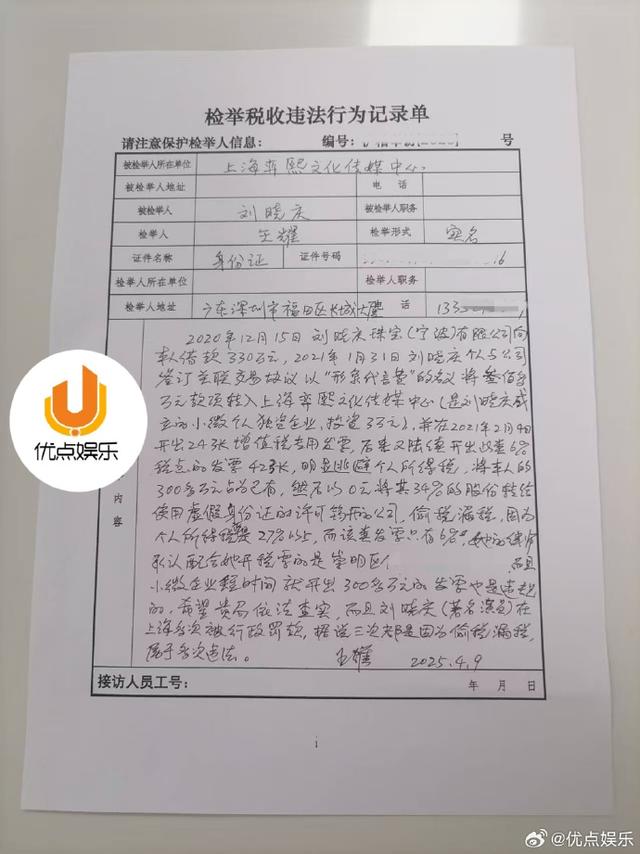 检举税收违法行为记录单
请注意保护检举人信息: 编号: 号
被检举人所在单位 上海弈熙文化传媒中心
被检举人地址 电 话
被检举人 刘晓庆 被检举人职务
检举人 王耀 检举形式 实名
证件名称 身份证 证件号码 16
检举人所在单位 检举人职务
检举人地址 广东深圳市福田区长城大厦 话 133
2020年12月15日刘晓庆珠宝(宁波)有限公司向
本人借款330万元,2021年1月31日刘晓庆个人与公司
签订关联交易协议以“形象代言费”的名义将叁佰多
万元款项转入上海弈熙文化传媒中心(是刘晓庆成
立的小微个人独资企业,投资3万元),并在2021年2月4日
开出24张增值税专用发票,后来又陆续开出此类6%
税点的发票42张,明显逃避个人所得税,将本人的
300多万元占为己有,然后以0元将其34%的股份转给
使用虚假身份证的许可 的公司,偷税漏税,因为
个人所得税是27%以上,而该类发票只有6%,她的律师
承认配合她开税票的是崇明区 而且
小微企业短时间就开出300多万元的发票也是违规
的,希望贵局依法查实,而且刘晓庆(著名演员)在
上海多次被行政罚款,据说三次都是因为偷税漏税,
属于多次违法。 王耀 2025.4.9
内
容
接访人员工号: 年 月 日
1
优点娱乐
@优点娱乐